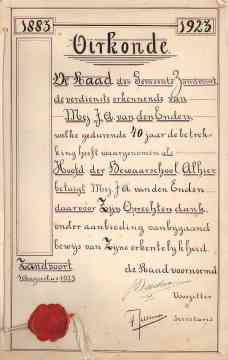 1883 1923
Oirkonde.
De Raad der Gemeente Zandvoort
de verdienste erkennende van
Mej. J. A. van den Enden
welke gedurende 40 jaar de betrek-
king heeft waargenomen als
Hoofd der Bewaarschool Alhier
betuigt Mej. J A. van den Enden
daarvoor Zijn Oprechten dank,
onder aanbieding van bijgaand
bewijs van Zijne erkentelijkheid.
Zandvoort
Augustus 1923
de Raad voornoemd
Voorzitter
Secretaris